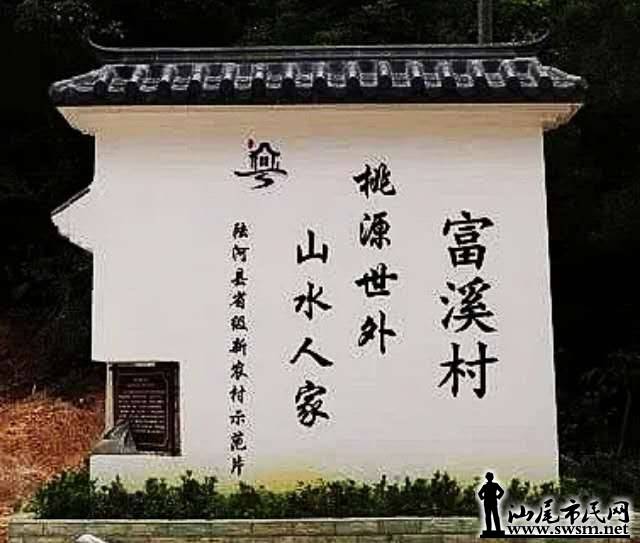 富溪村
桃源世外
山水人家
陆河县省级新农村示范片
汕尾市民网
www.swsm.net